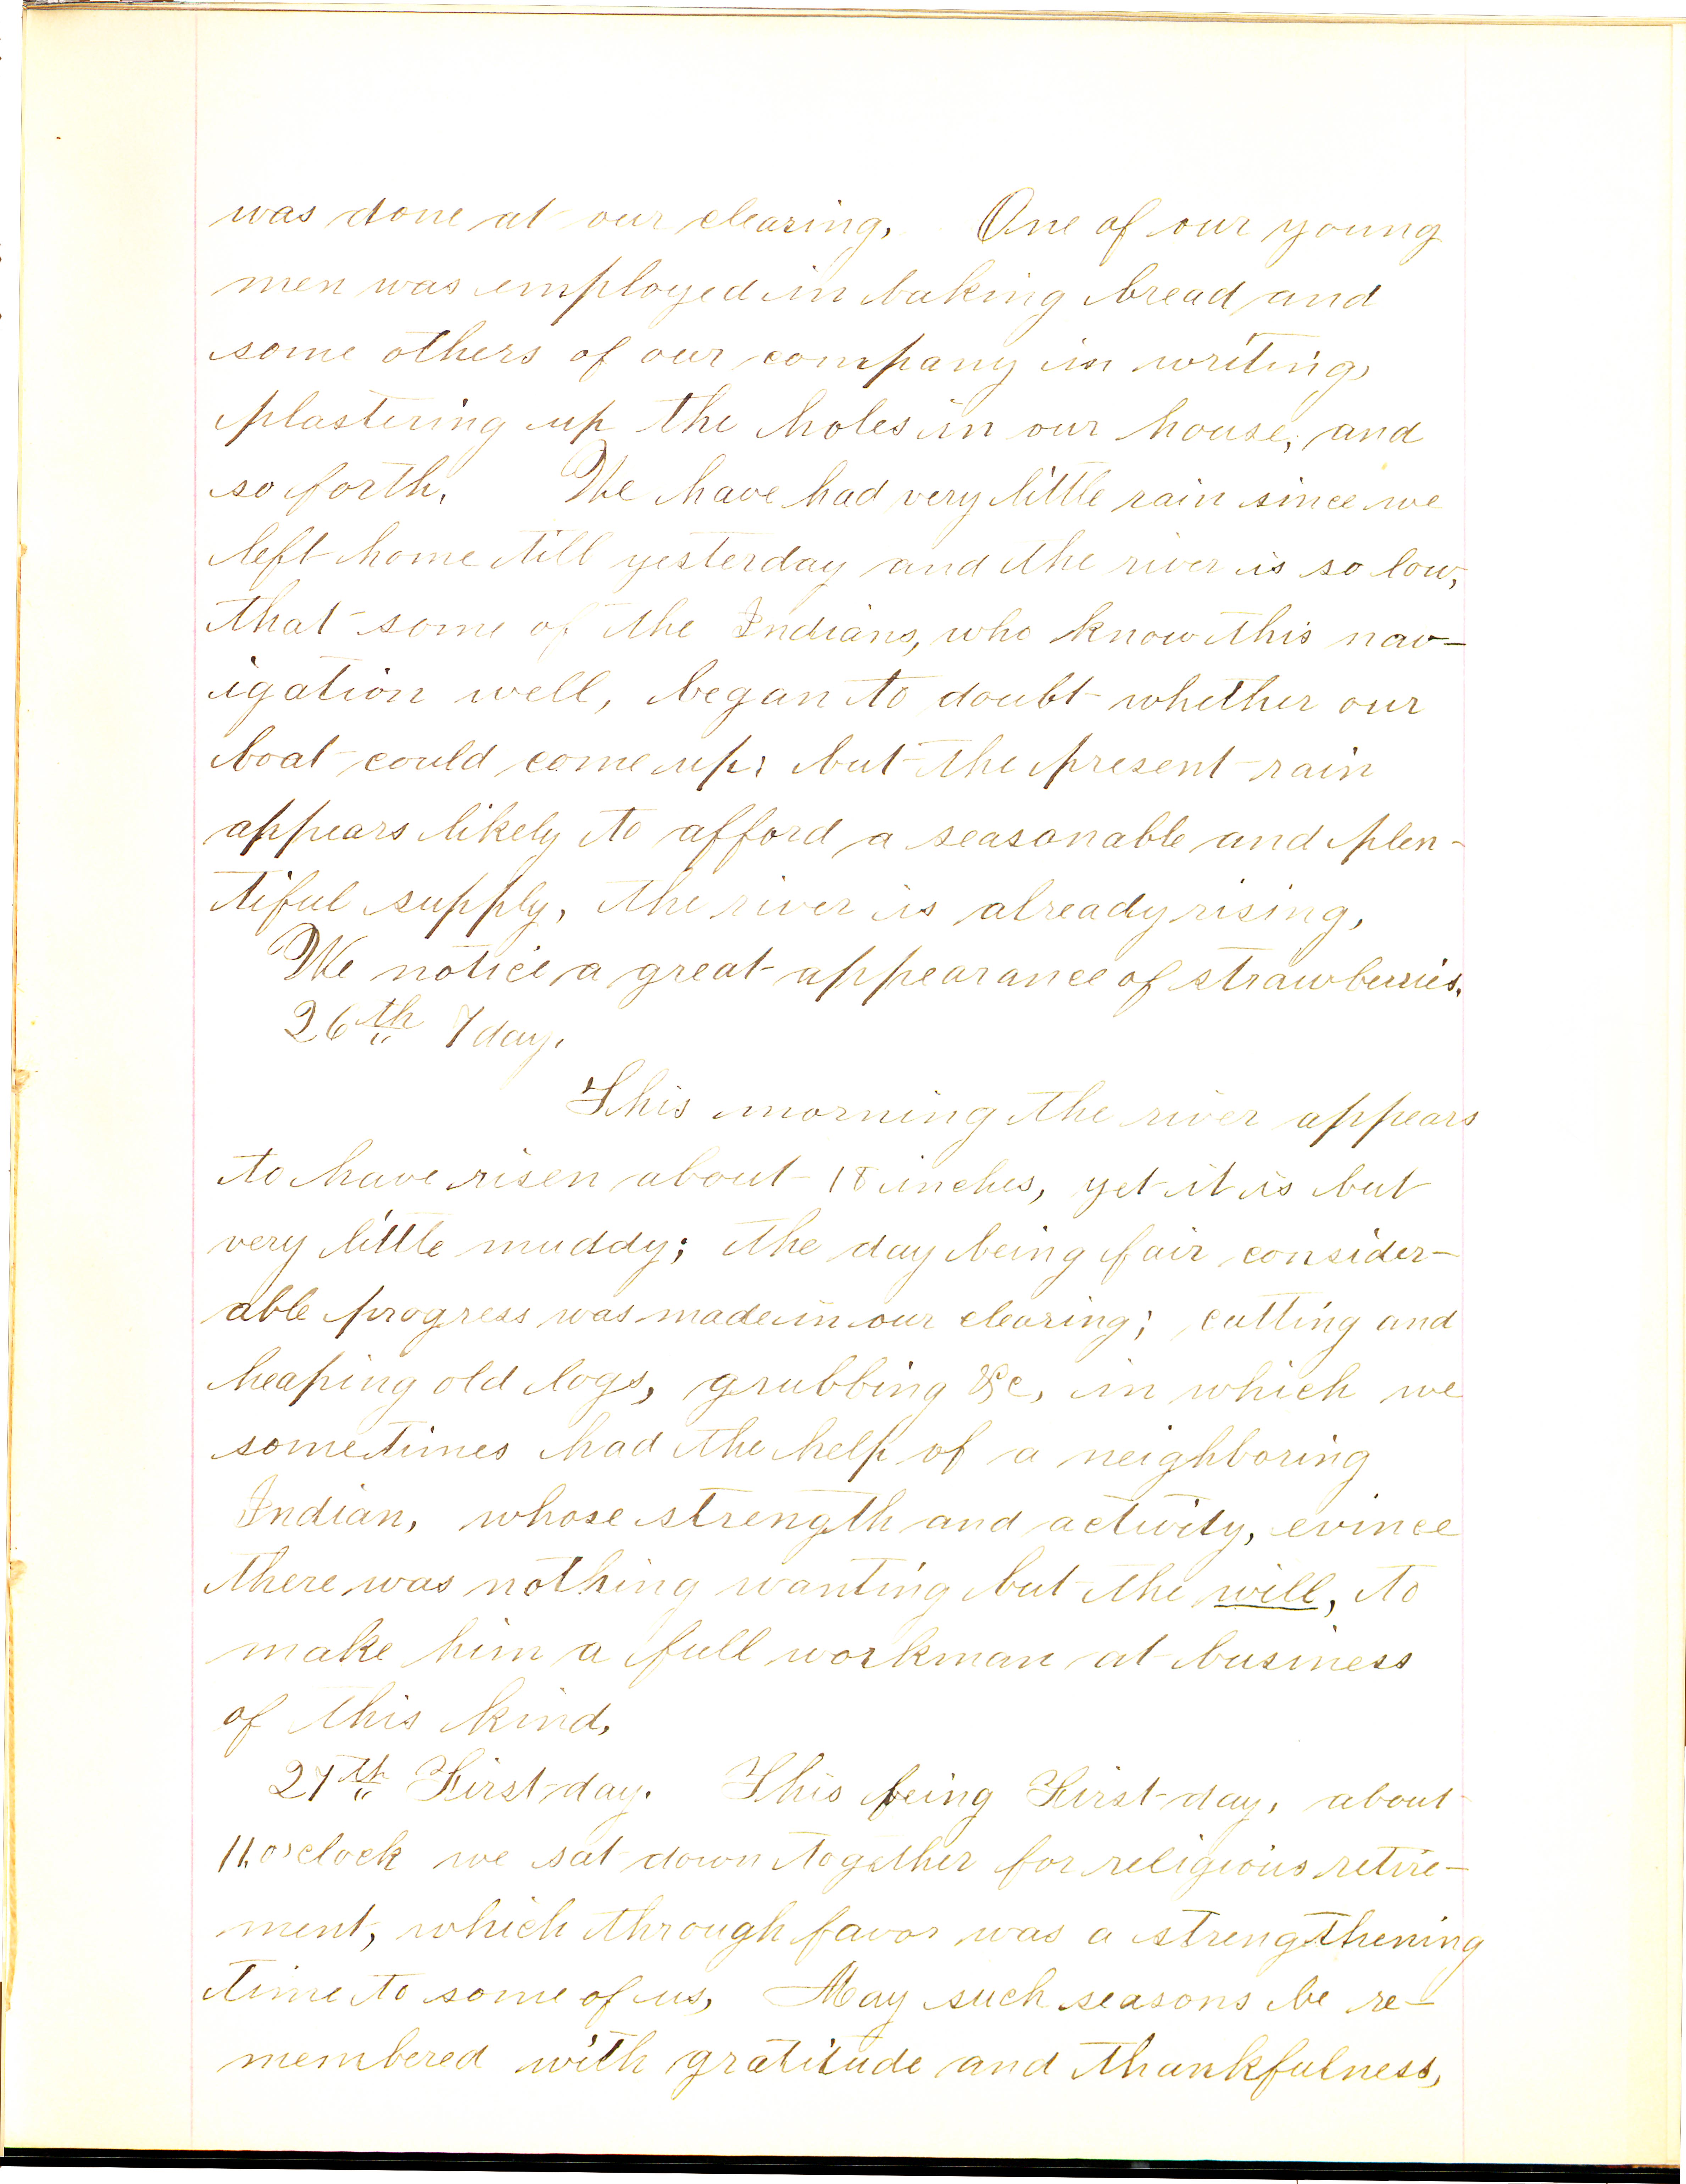 was done at our clearing. One of our young
men was employed in baking bread and
some others of our company in writing,
plastering up the holes in our house, and
so forth. We have had very little rain since we
left home till yesterday and the river is so low,
that some of the Indians, who know this nav-
igation well, began to doubt whether our
boat could come up; but the present rain
appears likely to afford a seasonable and plen-
tiful supply, the river is already rising.
We notice a great appearance of strawberries.
26th 7 day.
This morning the river appears
to have risen about 18 inches, yet it is but
very little muddy; the day being fair consider-
able progress was made in our clearing; cutting and
heaping old logs, grubbing &c, in which we
sometimes had the help of a neighboring
Indian, whose strength and activity, evince
there was nothing wanting but the will, to
make him a full workman at business
of this kind.
27th First-day. This being First-day, about
11 o'clock we sat down together for religious retire-
ment, which through favor was a strengthening
time to some of us, May such seasons be re-
membered with gratitude and thankfulness,